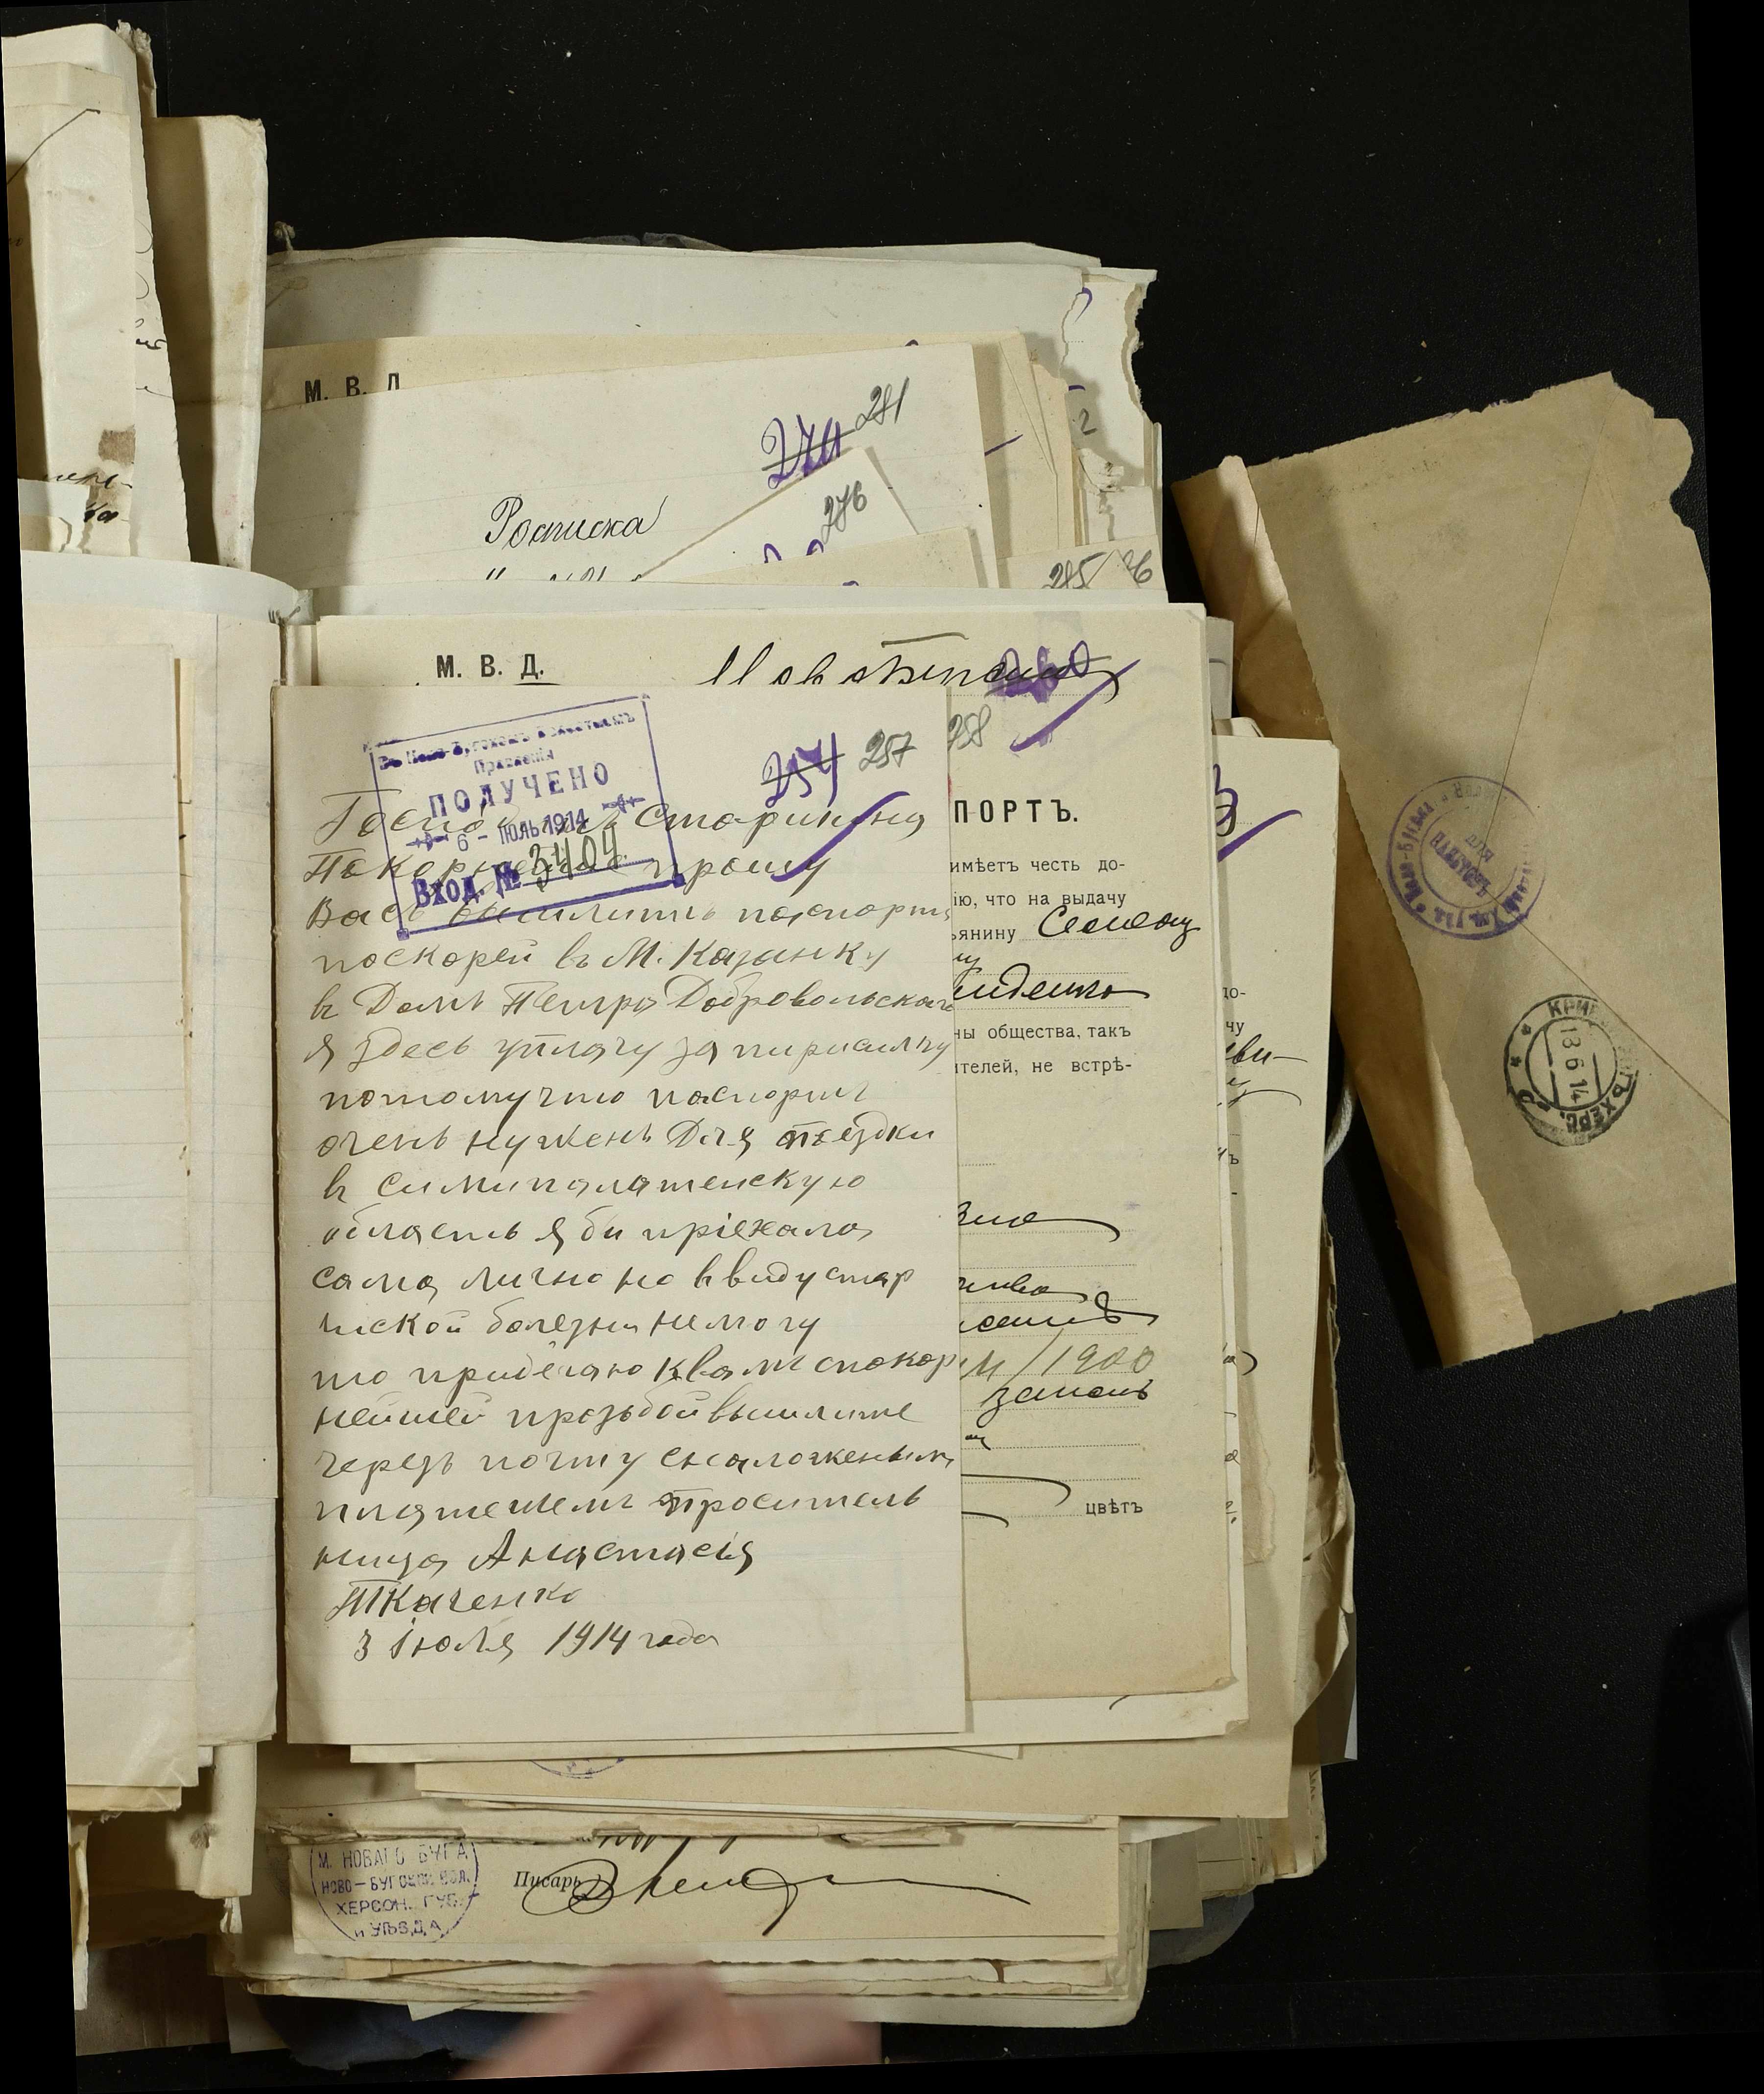 М. В. Д
281
274
276
Росписка
285
М. В. Д.
260
258
257
254
Въ Ново-Бугскомъ волостномъ
Правленіи
ПОЛУЧЕНО
6 - ІЮЛЬ 1914
Вход. № 3404
старшина
Покорнейше прошу
Васъ вишлить паспортъ
поскорей въ М. Казанку
въ Домъ Петра Добровольскаго
я здесь уплачу за пирисилку
потомучто паспортъ
очень нуженъ Для поездки
въ Симипалатенскую
область я би пріехала
сама лично но ввиду стар
ческой болезни немогу
то прибегаю квамъ спокор
нейшей прозьбой вышлите
черезъ почту сналоженымъ
платежемъ проситель
ница Анастасія
Ткаченко
3 Іюля 1914 года
ПОРТЪ.
имѣетъ честь до-
ію, что на выдачу
ьянину Семену
ны общества, такъ
ителей, не встрѣ-
1900
цвѣтъ
до-
чу
13 6 14
ХЕРС.
М. НОВАГО БУГА
НОВО-БУГСКОЙ ВОЛ.
ХЕРСОН. ГУБ.
и УѢЗДА
Писарь